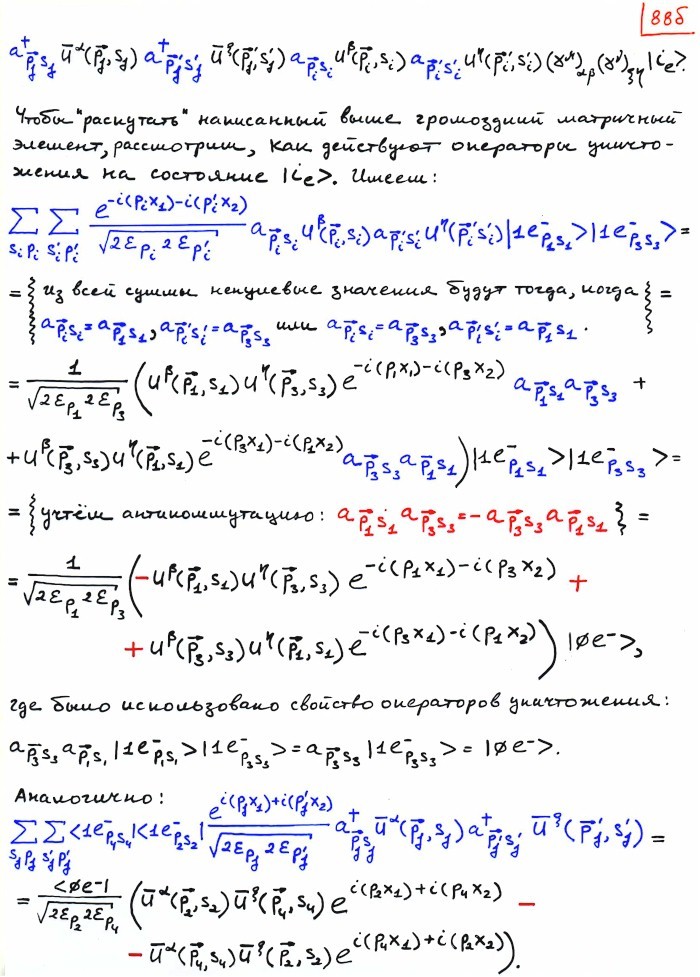 88б
a⁺_{p⃗_f s_f} ū^α(p⃗_f, s_f) a⁺_{p⃗'_f s'_f} ū^ξ(p⃗'_f, s'_f) a_{p⃗_i s_i} u^β(p⃗_i, s_i) a_{p⃗'_i s'_i} u^η(p⃗'_i, s'_i) (γ^μ)_{αβ} (γ^ν)_{ξη} |i_e>.
Чтобы "распутать" написанный выше громоздкий матричный
элемент, рассмотрим, как действуют операторы уничто-
жения на состояние |i_e>. Имеем:
∑_{s_i p_i} ∑_{s'_i p'_i} e^{-i(p_i x_1)-i(p'_i x_2)} / √(2ε_{p_i} 2ε_{p'_i}) a_{p⃗_i s_i} u^β(p⃗_i, s_i) a_{p⃗'_i s'_i} u^η(p⃗'_i s'_i) |1e⁻_{p⃗_1 s_1}>|1e⁻_{p⃗_3 s_3}> =
= { из всей суммы ненулевые значения будут тогда, когда
a_{p⃗_i s_i} = a_{p⃗_1 s_1}, a_{p⃗'_i s'_i} = a_{p⃗_3 s_3} или a_{p⃗_i s_i} = a_{p⃗_3 s_3}, a_{p⃗'_i s'_i} = a_{p⃗_1 s_1}. } =
= 1/√(2ε_{p_1} 2ε_{p_3}) ( u^β(p⃗_1, s_1) u^η(p⃗_3, s_3) e^{-i(p_1 x_1)-i(p_3 x_2)} a_{p⃗_1 s_1} a_{p⃗_3 s_3} +
+ u^β(p⃗_3, s_3) u^η(p⃗_1, s_1) e^{-i(p_3 x_1)-i(p_1 x_2)} a_{p⃗_3 s_3} a_{p⃗_1 s_1} ) |1e⁻_{p⃗_1 s_1}>|1e⁻_{p⃗_3 s_3}> =
= { учтём антикоммутацию: a_{p⃗_1 s_1} a_{p⃗_3 s_3} = - a_{p⃗_3 s_3} a_{p⃗_1 s_1} } =
= 1/√(2ε_{p_1} 2ε_{p_3}) ( - u^β(p⃗_1, s_1) u^η(p⃗_3, s_3) e^{-i(p_1 x_1)-i(p_3 x_2)} +
+ u^β(p⃗_3, s_3) u^η(p⃗_1, s_1) e^{-i(p_3 x_1)-i(p_1 x_2)} ) |∅e⁻>,
где было использовано свойство операторов уничтожения:
a_{p⃗_3 s_3} a_{p⃗_1 s_1} |1e⁻_{p⃗_1 s_1}>|1e⁻_{p⃗_3 s_3}> = a_{p⃗_3 s_3} |1e⁻_{p⃗_3 s_3}> = |∅e⁻>.
Аналогично:
∑_{s_f p_f} ∑_{s'_f p'_f} <1e⁻_{p⃗_4 s_4}|<1e⁻_{p⃗_2 s_2}| e^{i(p_f x_1)+i(p'_f x_2)} / √(2ε_{p_f} 2ε_{p'_f}) a⁺_{p⃗_f s_f} ū^α(p⃗_f, s_f) a⁺_{p⃗'_f s'_f} ū^ξ(p⃗'_f, s'_f) =
= <∅e⁻| / √(2ε_{p_2} 2ε_{p_4}) ( ū^α(p⃗_2, s_2) ū^ξ(p⃗_4, s_4) e^{i(p_2 x_1)+i(p_4 x_2)} -
- ū^α(p⃗_4, s_4) ū^ξ(p⃗_2, s_2) e^{i(p_4 x_1)+i(p_2 x_2)} ).